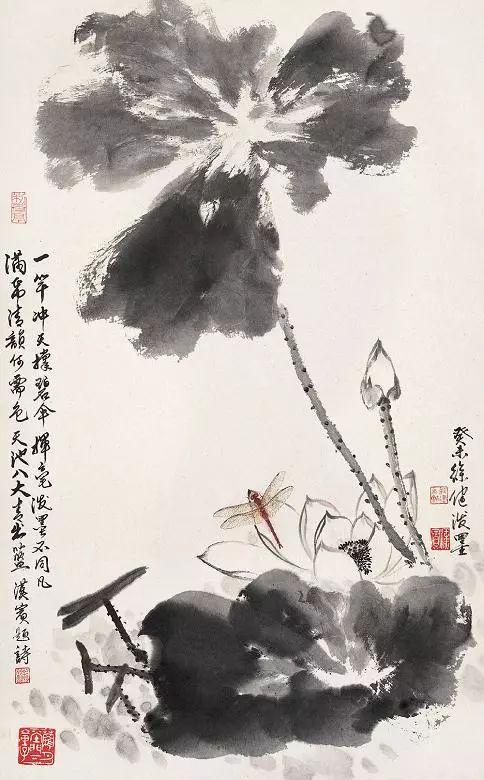 一竿冲天撑碧伞 挥毫泼墨不同凡
满布清韵何需色 天池八大青出蓝 汉宾题诗
癸未徐健泼墨